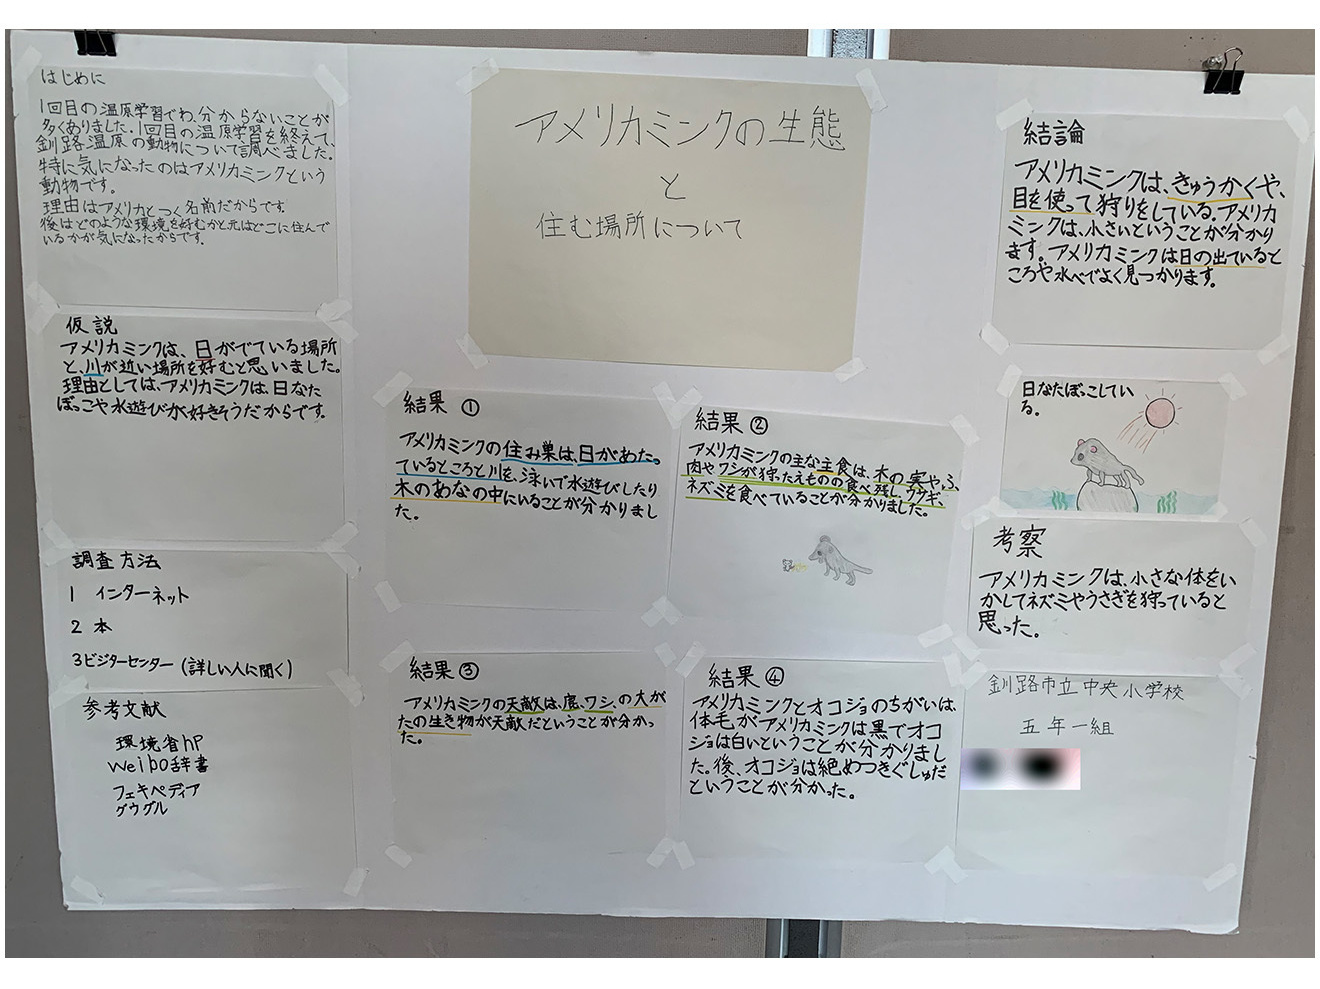 はじめに
1回目の温原学習でわ、分からないことが
多くありました。1回目の温原学習を終えて、
釧路温原の動物について調べました。
特に気になったのはアメリカミンクという
動物です。
理由はアメリカとつく名前だからです。
後はどのような環境を好むかと元はどこに住んで
いるかが気になったからです。
仮説
アメリカミンクは、日がでている場所
と、川が近い場所を好むと思いました。
理由としては、アメリカミンクは、日なた
ぼっこや水遊びが好きそうだからです。
調査方法
1 インターネット
2 本
3ビジターセンター(詳しい人に聞く)
参考文献
環境省hP
Weibo辞書
フェキペディア
グウグル
アメリカミンクの生態
と
住む場所について
結果 ①
アメリカミンクの住み巣は、日があたっ
ているところと川を、泳いで水遊びしたり
木のあなの中にいることが分かりまし
た。
結果 ②
アメリカミンクの主な主食は、木の実や、
肉やワシが狩ったえものの食べ残し、ウサギ、
ネズミを食べていることが分かりました。
結果 ③
アメリカミンクの天敵は、鹿、ワシ、の大が
たの生き物が天敵だということが分かっ
た。
結果 ④
アメリカミンクとオコジョのちがいは、
体毛がアメリカミンクは黒でオコ
ジョは白いということが分かりまし
た。後、オコジョは絶めつきぐしゅだ
ということが分かった。
結論
アメリカミンクは、きゅうかくや、
目を使って狩りをしている。アメリカ
ミンクは、小さいということが分かり
ます。アメリカミンクは日の出ていると
ころや水べでよく見つかります。
日なたぼっこしてい
る。
考察
アメリカミンクは、小さな体をい
かしてネズミやうさぎを狩っていると
思った。
釧路市立中央小学校
五年一組